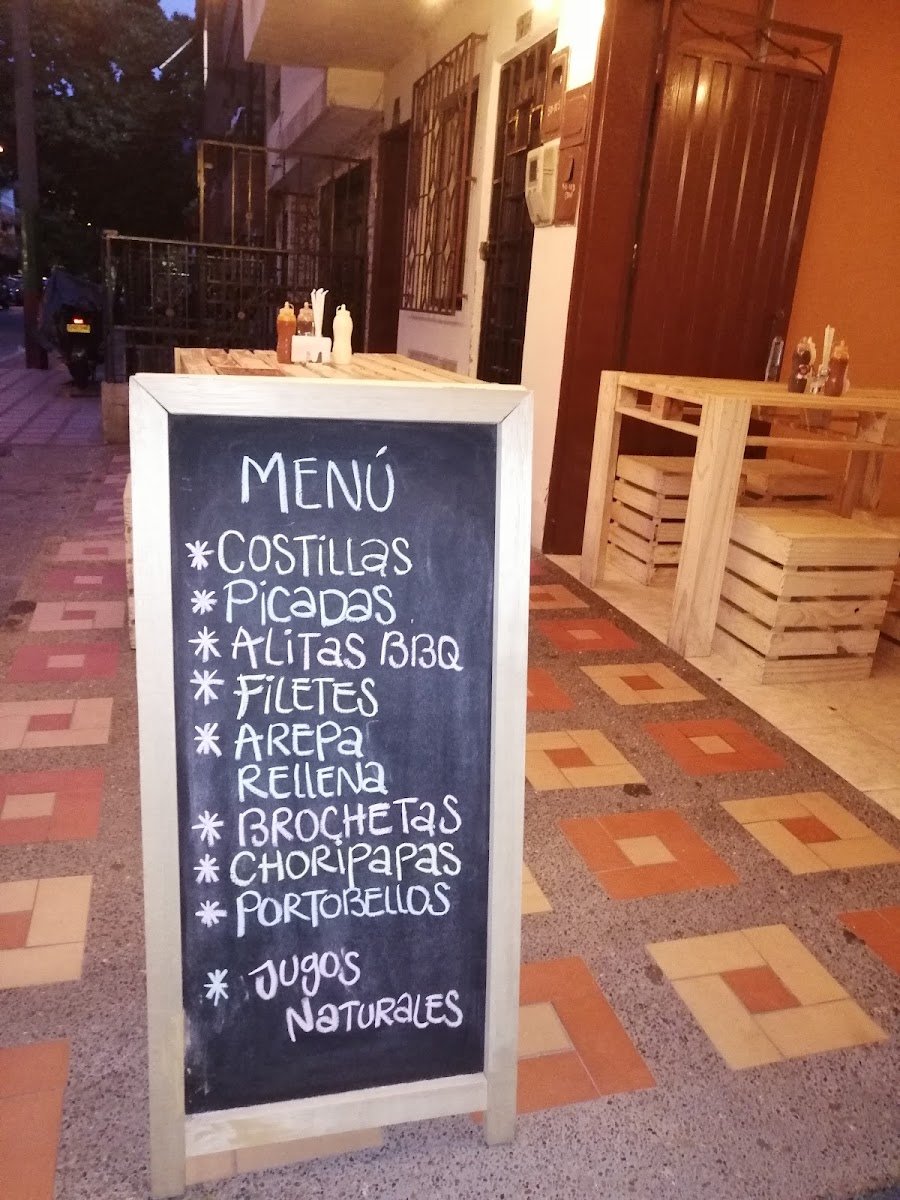 MENÚ
* COSTILLAS
* PICADAS
* ALITAS BBQ
* FILETES
* AREPA
RELLENA
* BROCHETAS
* CHORIPAPAS
* PORTOBELLOS
* JUGO'S
NATURALES